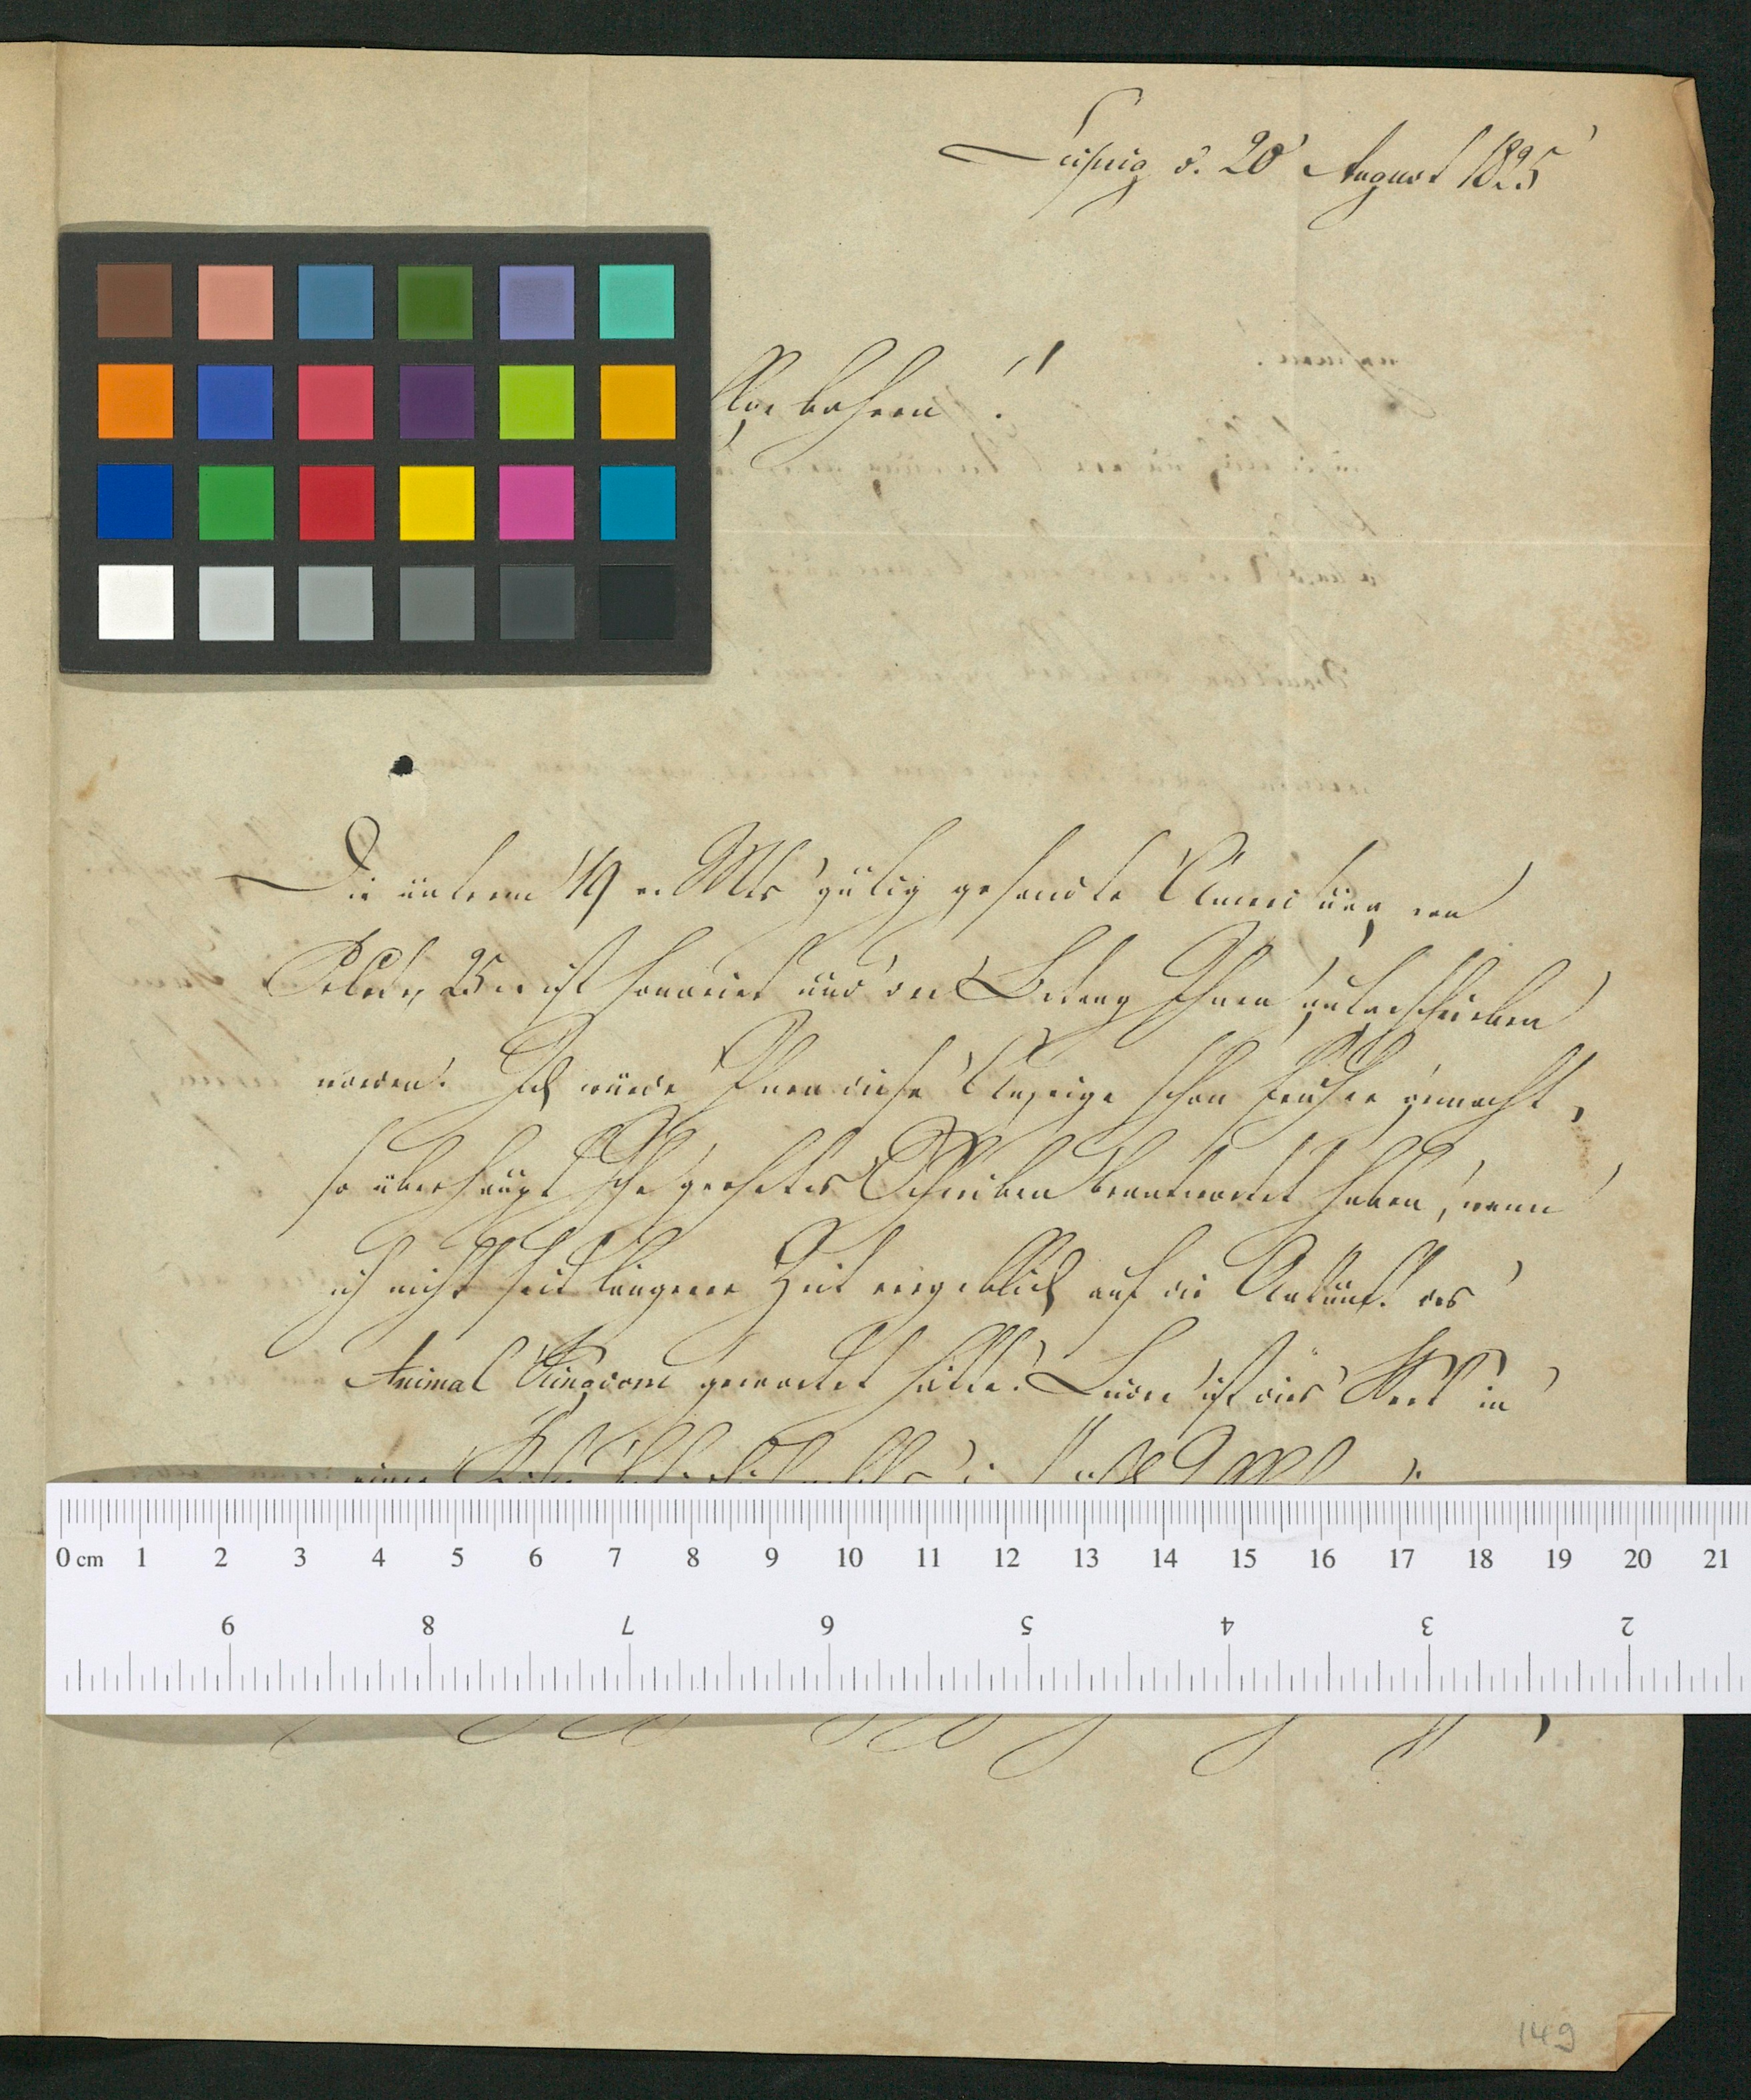 Leipzig d. 20 August 1825
Wohlgebohren!
Die unterm 19 v. Mts gütig gesandte Anweisung von
25 ist honorirt und der Betrag Ihnen gutgeschrieben
worden. Ich würde Ihnen diese Anzeige schon früher gemacht,
so überhaupt Ihr geehrtes Schreiben beantwortet haben, wenn
ich nicht seit längerer Zeit vergeblich auf die Ankunft des
Animal Kingdom gewartet hätte. Leider ist dies Werk in
einer
0 cm 1 2 3 4 5 6 7 8 9 10 11 12 13 14 15 16 17 18 19 20 21
9 8 7 6 5 4 3 2
149